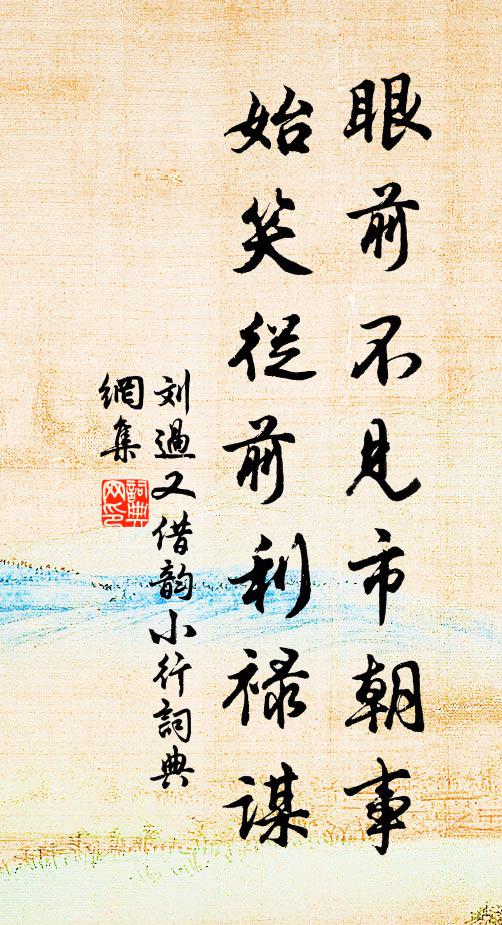 眼前不見市朝事
始笑從前利祿謀
刘過又借韵小行詞典
網集
詞典網印